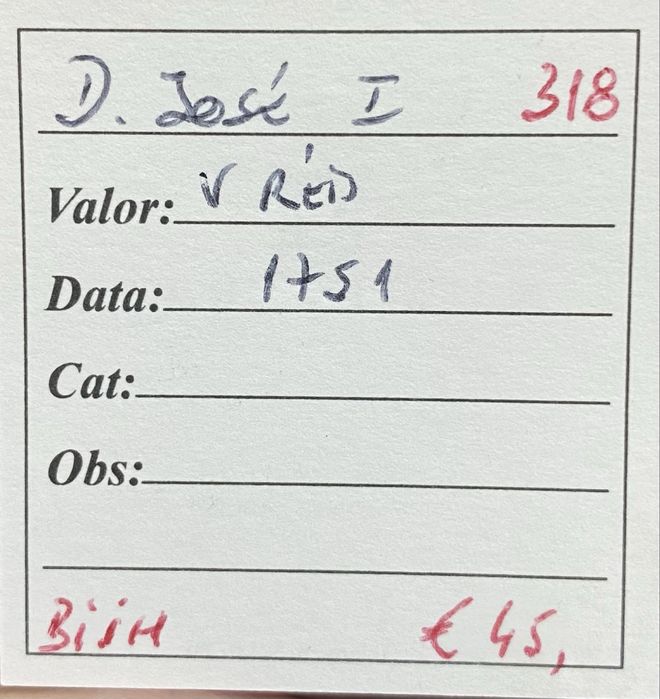 D. José I 318
Valor: V RÉIS
Data: 1751
Cat:
Obs:
€ 45,